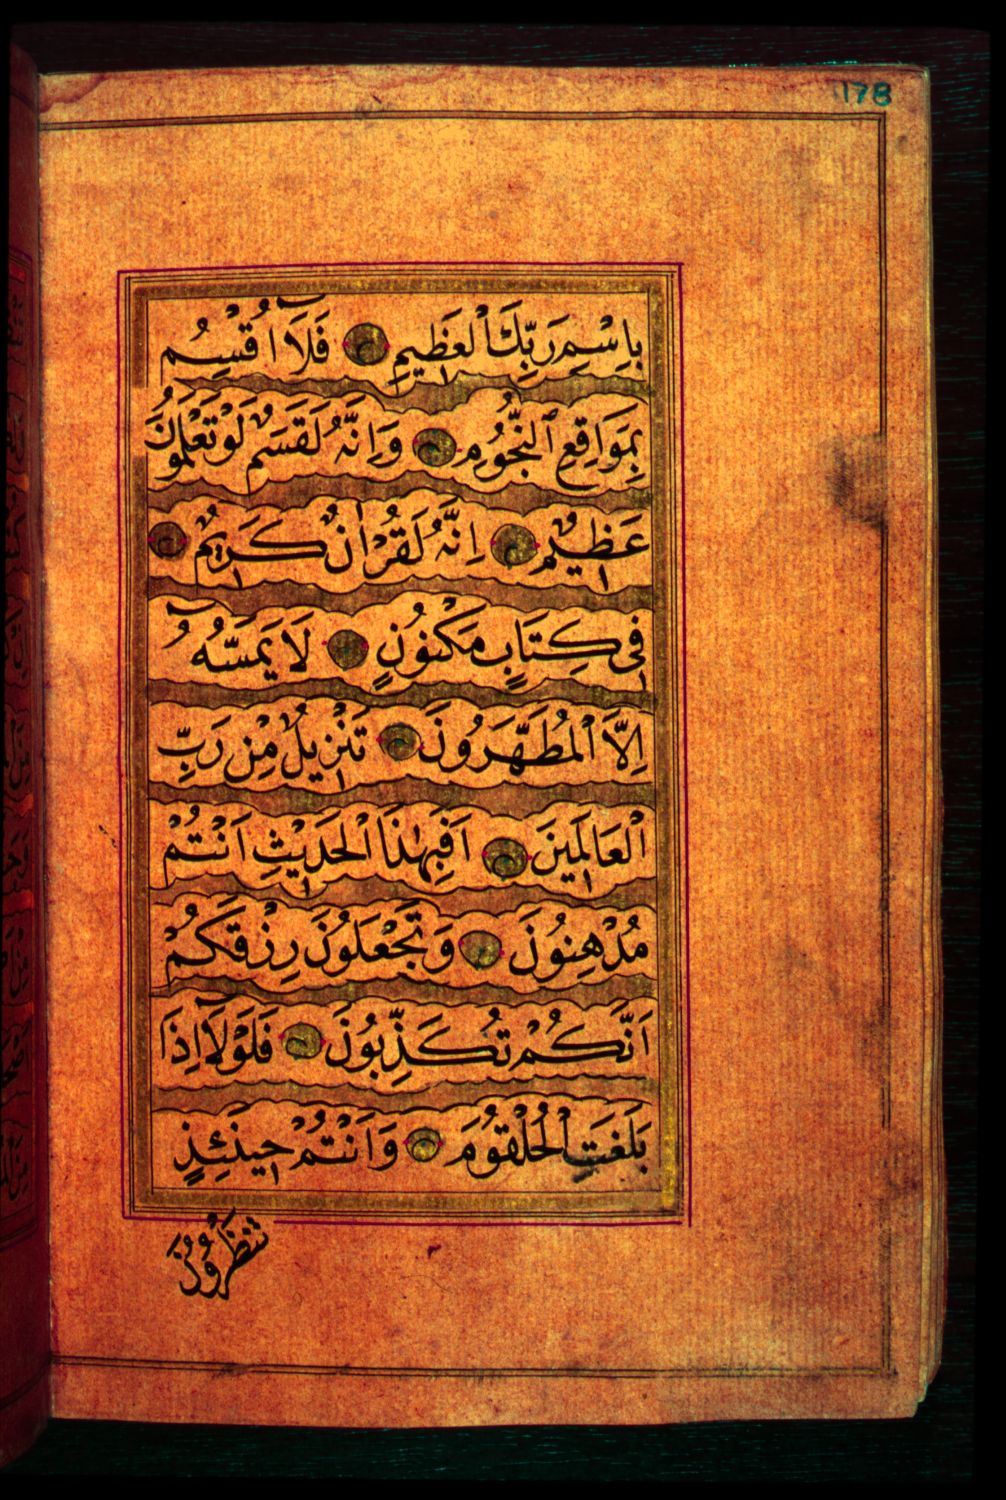 178
بِاِسْمِ رَبِّكَ الْعَظٖيمِ فَلَٓا اُقْسِمُ
بِمَوَاقِعِ النُّجُومِ وَاِنَّهُ لَقَسَمٌ لَوْ تَعْلَمُونَ
عَظٖيمٌ اِنَّهُ لَقُرْاٰنٌ كَرٖيمٌ
فٖى كِتَابٍ مَكْنُونٍ لَا يَمَسُّهُٓ
اِلَّا الْمُطَهَّرُونَ تَنْزٖيلٌ مِنْ رَبِّ
الْعَالَمٖينَ اَفَبِهٰذَا الْحَدٖيثِ اَنْتُمْ
مُدْهِنُونَ وَتَجْعَلُونَ رِزْقَكُمْ
اَنَّكُمْ تُكَذِّبُونَ فَلَوْلَٓا اِذَا
بَلَغَتِ الْحُلْقُومَ وَاَنْتُمْ حٖينَئِذٍ
تَنْظُرُونَ